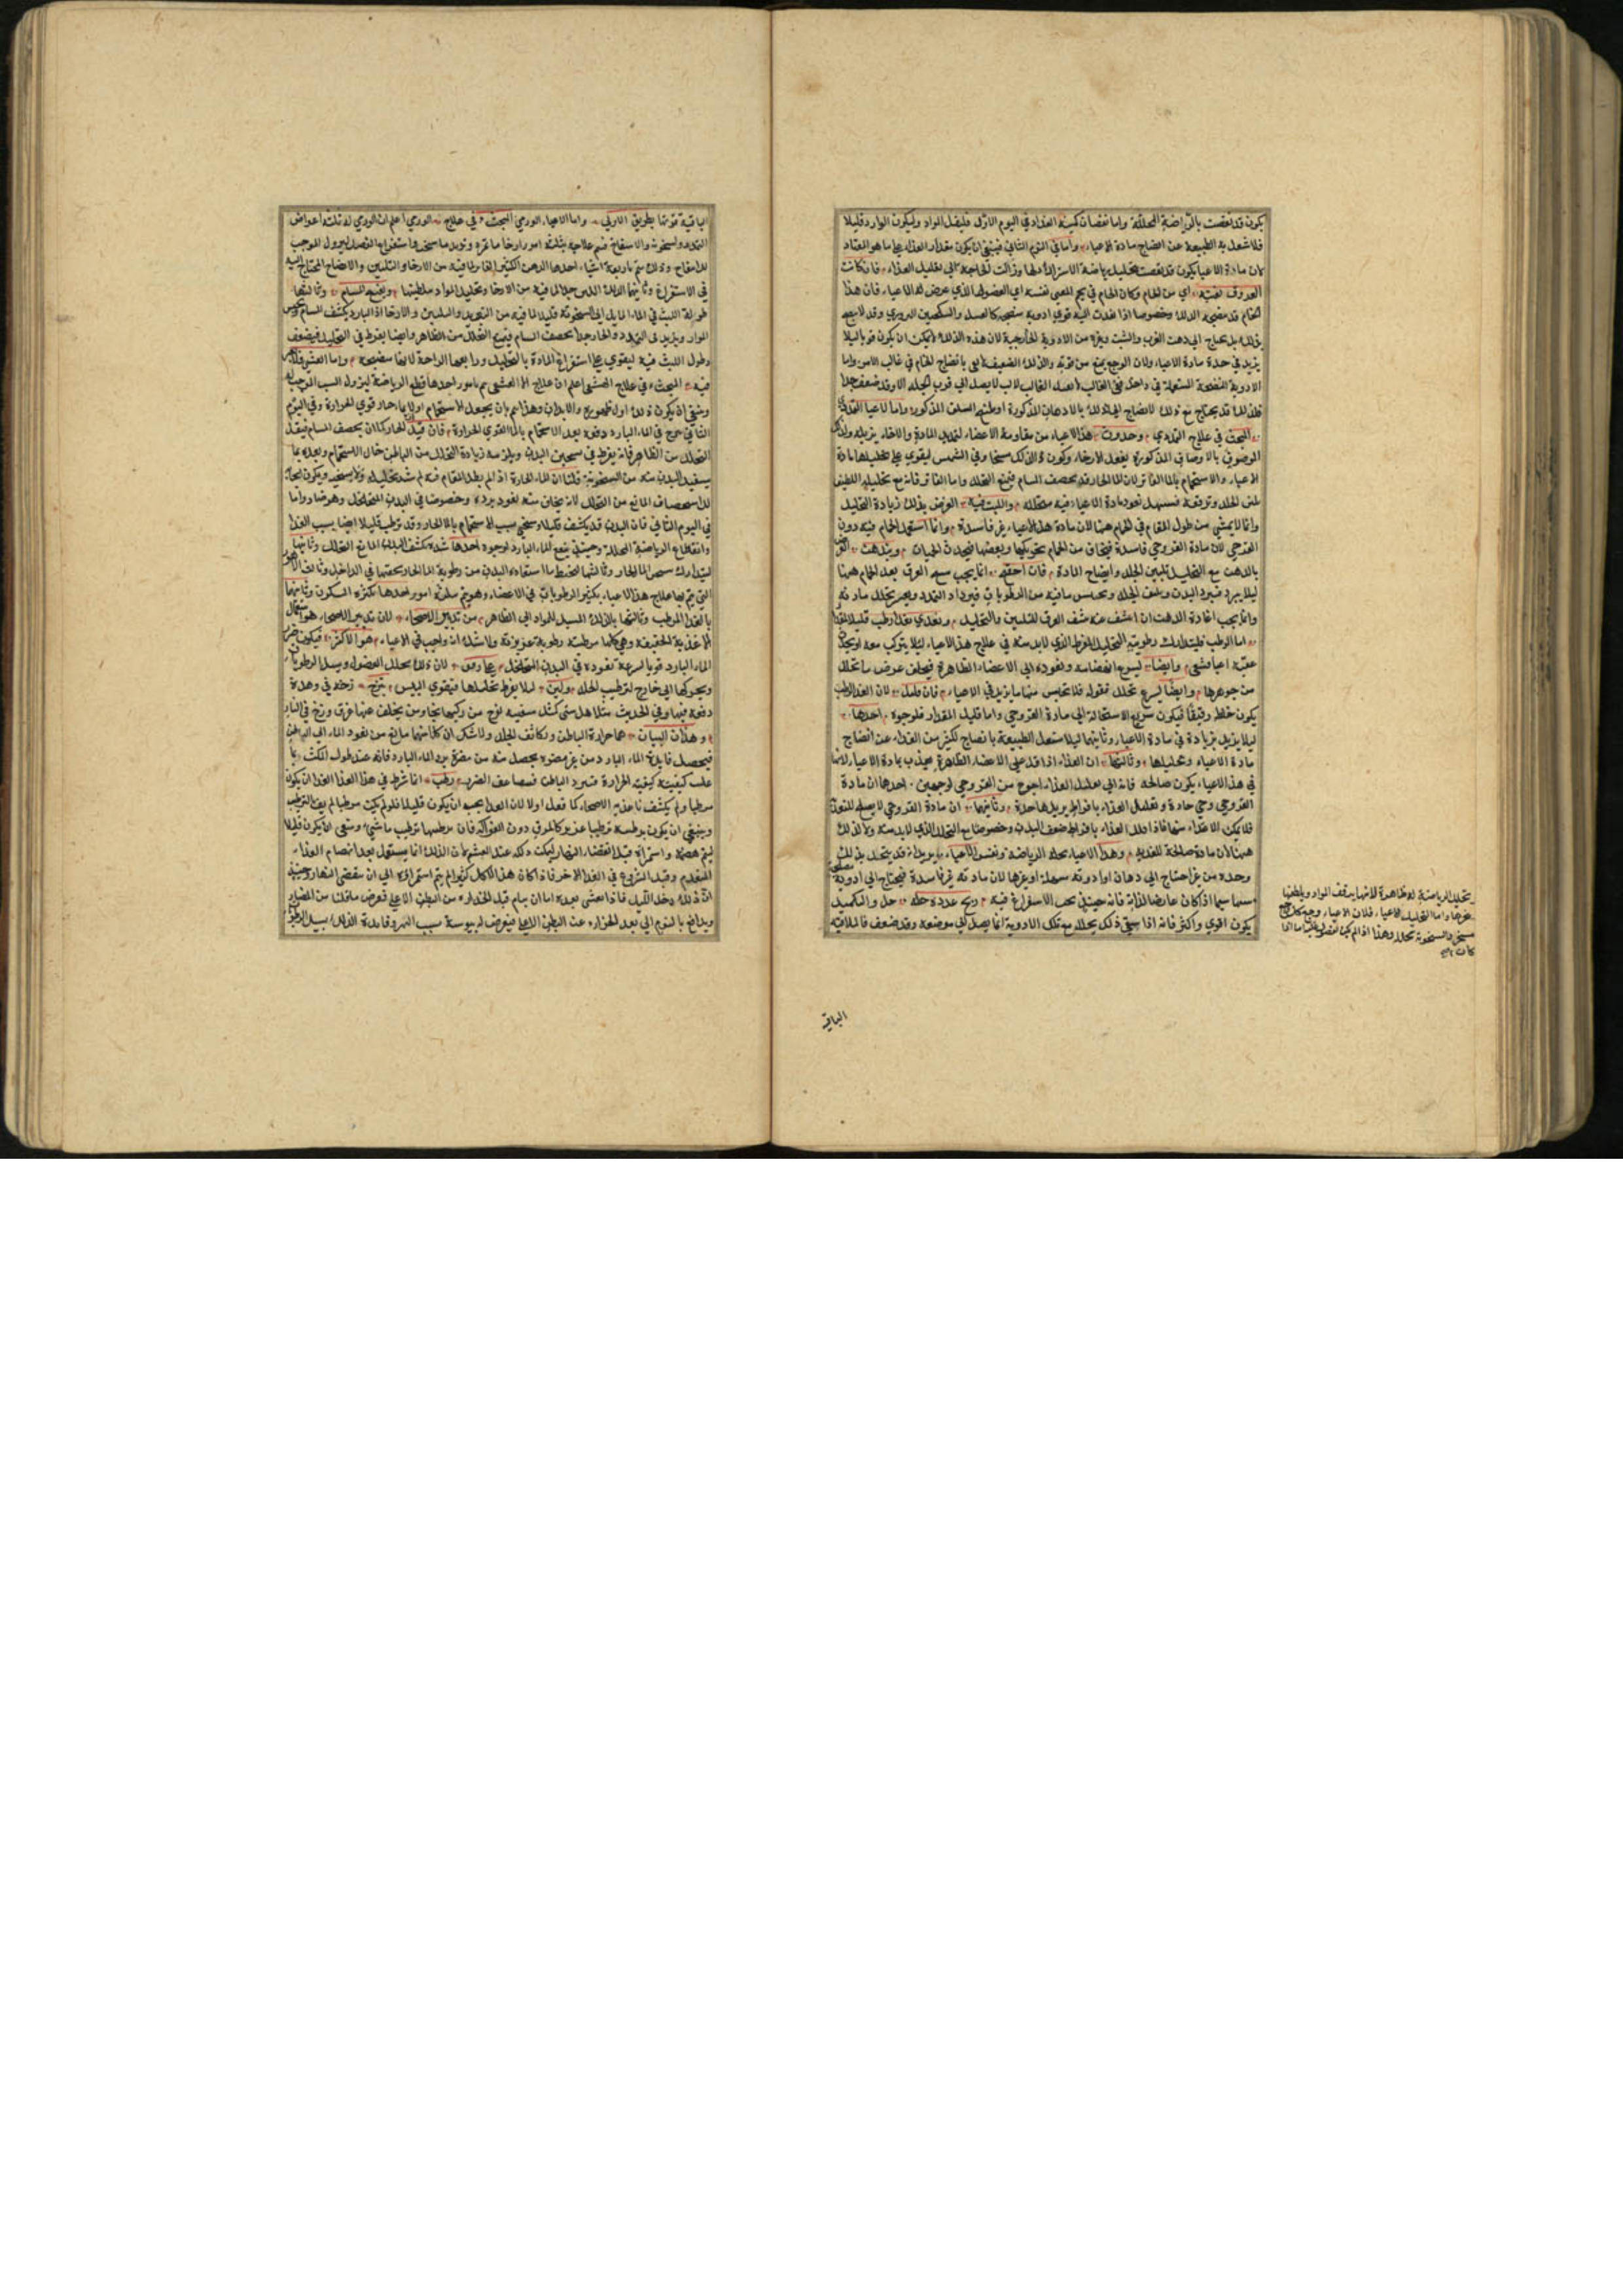 يكون قد نقصت بالرياضة المحللة واما نقصان كمية الغذاء في اليوم الاول فليقل المواد وليكون الوارد قليلا
فلا تشغل به الطبيعة عن انضاج مادة الاعياء واما في اليوم الثاني فينبغي ان يكون مقدار الغذاء على ما هو المعتاد
لان مادة الاعياء يكون قد نقصت بتحليل رياضة الاسترداد لها وزالت الحاجة الى تقليل الغذاء فان كانت
العروق نقية اي من الخام وكان الخام في لحم المعيى نفسه اي العضو الذي عرض له الاعياء فان هذا
الخام قد ينضجه الدلك وخصوصا اذا نفذت اليه قوى ادوية مسخنة كالعسل والسكنجبين البزوري وقد لا
بذلك بل يحتاج الى دهن الغرب والشبت وغيره من الادوية الخارجية لان هذه الدلك لا يمكن ان يكون قويا ليلا
يزيد في حدة مادة الاعياء ولان الوجع يمنع من قوته والدلك الضعيف لا يفي بانضاج الخام في غالب الامر واما
الادوية المنضجة المستعملة في داخل ففي الغالب لا يصل الى قرب الجلد الا وقد ضعف جدا
فلذلك قد يحتاج مع ذلك لانضاج الى الدلك بالادهان المذكورة اوطنها السلف المذكورة واما الاعياء التمددي
البحث في علاج التمددي وحدوث هذا الاعياء من مقاومة الاعضاء لتمديد المادة والارخاء يزيله والدلك
الموصوف بالاوصاف المذكورة يفعل الارخاء وكون الدلك سخنا وفي الشمس ليقوي على تحليلها مادة
الاعياء والاستحمام بالماء الفاتر لان الماء الحار قد يحصف المسام فيمنع التحلل واما الفاتر فانه مع تحليله اللطيف
يلين الجلد ويرققه فيسهل نفوذ مادة الاعياء فيه متحللة واللبث فيه الغرض بذلك زيادة التحليل
وانما لا يخشى من طول المقام في الحمام ههنا لان مادة هذا الاعياء غير فاسدة وانما استعمل الحمام فيه دون
القروحي لان مادة القروحي فاسدة فيخاف من الحمام تحريكها وبعضها فيحدث الحميات ويدهن
بالدهن مع التحليل تليين الجلد وانضاج المادة فان احققه انما يجب مسح العرق بعد الحمام ههنا
ليلا يبرد فيبرد البدن ويكثف الجلد ويحتبس ما فيه من الرطوبات فيزداد التمدد ويعسر تحلل مادته
وانما يجب اعادة الدهن ان نشف عنه نشف العرق للتليين والتحليل ويغذي بغذاء رطب قليل المقدار
اما الرطب فليتدارك رطوبة التحليل المفرط الذي لابد منه في علاج هذا الاعياء ليلا يتركب معه او يحدث
عقبه اعياء قشفي وايضا ليسرع انهضامه ونفوذه الى الاعضاء الظاهرة فيخلف عوض ما تحلل
من جوهرها وايضا ليسرع تحلل فضوله فلا تحتبس منها ما يزيد في الاعياء فان قليل لان الغذاء الرطب
يكون خلطه رقيقا فيكون سريع الاستحالة الى مادة القروحي واما قليل المقدار فلوجوه احدها
ليلا يزيد بزيادة في مادة الاعياء وثانيها ليلا تشتغل الطبيعة بانضاج الكثير من الغذاء عن انضاج
مادة الاعياء وتحليلها وثالثها ان الغذاء اذا قل على الاعضاء الظاهرة يجذب بمادة الاعياء لانها
في هذا الاعياء يكون صالحة فانه الى تقليل الغذاء احوج من القروحي لوجهين احدهما ان مادة
القروحي وهي حادة وتقليل الغذاء بافراط يزيدها حدة وثانيهما ان مادة القروحي لا يصلح للتغذي
فلا يمكن الاغتذاء منها فاذا قلل الغذاء بافراط ضعف البدن وخصوصا مع التحلل الذي لابد منه ولا كذلك
ههنا لان مادة صالحة للتغذية وهذا الاعياء يحله الرياضة ونفس الاعياء يريد انه قد يتحلل بذلك
وحده من غير احتياج الى دهان او ادوية مسهلة او غيرها لان مادته غير فاسدة فيحتاج الى ادوية
سيما اذا كان عارضا لذاته فانه حينئذ يجب الاستفراغ فيه ريح عدده حله خل والتكميد
يكون اقوى واكثر فانه اذا سقي ذلك يحلل مع تلك الادوية انما يصل الى موضعه وقد ضعف فالملاقية
يتحلل الرياضة له ظاهرة لانها يرقق المواد ويلطفها
غيرها واما التحليل الاعياء فلان الاعياء وجع وكل وجع
مسخن والسخونة تحلل وهذا اذا لم يكن الفضول غليظا ما اذا
كان
الباقية
الباقية قوتها بطريق الاولى واما الاعياء الورمي البحث في علاج الورمي اعلم ان الورمي له ثلثة اعراض
التمدد والسخونة والانتفاخ فيتم علاجه بثلثة امور ارخاء ما تمدد وتبريد ما سخن واستفراغ الفضل ليزول الموجب
للانتفاخ وذلك يتم باربعة اشياء احدها الدهن الكثير الفاتر لما فيه من الارخاء والتليين والانضاج المحتاج اليه
في الاستفراغ وثانيها الدلك اللين جدا لما فيه من الارخاء وتحليل المواد وتلطيفها ويفتح المسام وثالثها
طول اللبث في الماء المايل الى السخونة قليلا لما فيه من التبريد والتليين والارخاء اذ البارد يكثف المسام
المواد ويزيد في التمدد والحار جدا يحصف المسام فيمنع التحلل من الظاهر وايضا يفرط في التحليل فيضعف
وطول اللبث فيه ليقوي على استفراغ المادة بالتحليل ورابعها الراحة لانها منضجة واما القشفي فلا
فيه البحث في علاج القشفي اعلم ان علاج القشفي يتم بامور احدها قطع الرياضة ليزول السبب الموجب له
وينبغي ان يكون ذلك اول ظهوره والابدان وهذا يتم بان يجعل الاستحمام اولا بماء حار قوي الحرارة وفي اليوم
الثاني يزج في الماء البارد دفعة بعد الاستحمام بالماء القوي الحرارة فان قيل الحار كما ان يحصف المسام فيقل
التحلل من الظاهر فانه يفرط في تسخين البدن ويلزمه زيادة التحلل من الباطن حال الاستحمام وبعده بما
يستفيد البدن منه من السخونة قلنا ان الماء الحارة اذا لم يطل المقام فيه لم يشتد تحليله ولا تسخينه ويكون
للاستحصاف المانع من التحلل لانه يخاف منه لنفوذ برده وخصوصا في البدن المتخلخل وهو ضار واما
في اليوم الثاني فان البدن قد يكثف قليلا وسخن بسبب الاستحمام بالماء الحار وقد ترطب قليلا ايضا بسبب الغذاء
وانقطاع الرياضة المحللة وحينئذ ينفع الماء البارد لوجوه احدها شدة تكثف البدن المانع للتحلل وثانيها
ليتدارك تسخين الماء الحار وثالثها لتحفظ ما استفاده البدن من رطوبة الماء الحار وتحقنها في الداخل وثالث الامور
التي يتم بها علاج هذا الاعياء بكثير الرطوبات في الاعضاء وهو يتم بثلثة امور احدها بكثرة السكون وثانيها
بالغذاء المرطب وثالثها بالدلك المسيل للمواد الى الظاهر من تدبير الاصحاء لان تدبير الاصحاء هو استعمال
الاغذية الخفيفة وهي كلها مرطبة رطوبة غريزية ولا شك انه واجب في الاعياء هو الاكثر فيكون ضرر
الماء البارد قويا لسرعة نفوذه في البدن المتخلخل بماء رقيق لان ذلك يحلل الفضول ويسيل الرطوبات
ويحركها الى خارج لترطيب الجلد ولين ليلا يفرط تحليلها فيقوي اليبس يزج زخه في وهدة
دفعه فيها وفي الحديث مثل اهل بيتي كمثل سفينة نوح من ركبها نجا ومن تخلف عنها غرق وزخ في النار
وهذان السببان هما حرارة الباطن وتكاثف الجلد ولا شك ان كلا منهما مانع من نفوذ الماء الى الباطن
فيحصل فايدة الماء البارد من غير مضرة يحصل منه من مضرة برد الماء البارد فانه عند طول المكث ربما
غلب كيفيته كيفية الحرارة فيبرد الباطن فيتضاعف الضرر رطب انما شرط في هذا الغذاء ان يكون
مرطبا ولم يكتف باغذية الاصحاء كما فعل اولا لان الغذاء يجب ان يكون قليلا فلو لم يكن مرطبا لم يف الترطيب
وينبغي ان يكون ترطيبه ترطيبا غذويا كالمرق دون الفواكه فان ترطيبها ترطيب مائي وينبغي ان يكون قليلا
ليتم هضمه واستمراؤه قبل انقضاء النهار ليمكن دلكه عند العشي لان الدلك انما يستعمل بعد انهضام الغذاء
المتقدم وقبل الشروع في الغذاء الاخر فاذا كان هذا الاكل كثيرا لم يتم استمراؤه الى ان ينقضي النهار وحينئذ
ان دلك دخل الليل فاذا تعشى بعده اما ان ينام قبل انحداره من البطن الاعلى فيعرض ما قلنا من المضار
ويدافع بالنوم الى بعد انحداره عن البطن الاعلى فيعرض له يبوسة بسبب السهر وفايدة الدلك تسييل الرطوبة